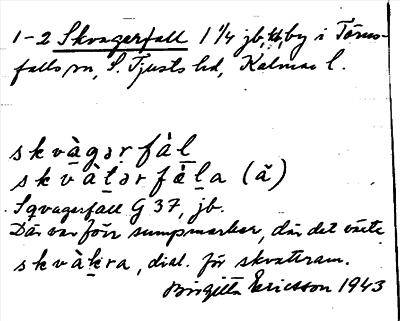 1-2 Skvagerfall 1 1/4 jb, by i Törns-
falls sn, S. Tjusts hd, Kalmar l.
skvàgər fàl
skvàlər fàla (ǎ)
Sqvagerfall G 37, jb.
Där var förr sumpmarker, där det växte
skvàkra, dial. för skvattram.
Birgitta Ericsson 1943